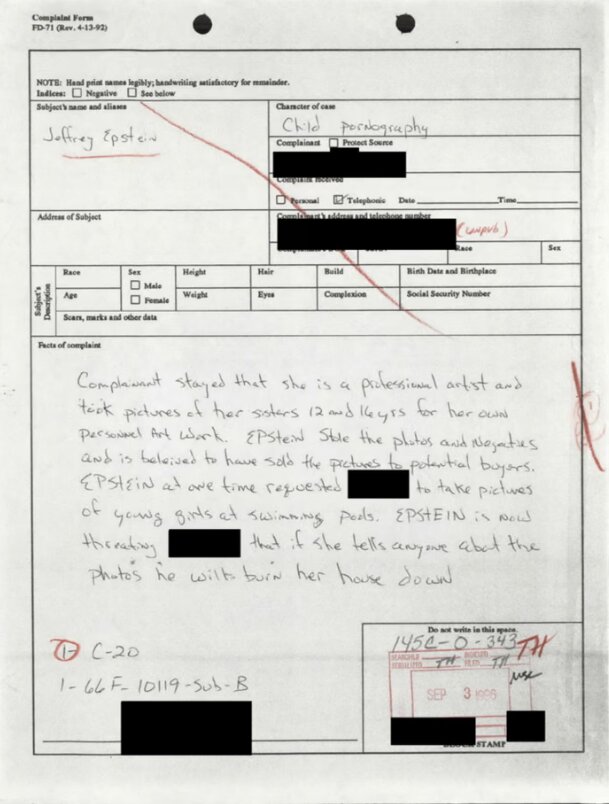 Complaint Form
FD-71 (Rev. 4-13-92)
NOTE: Hand print names legibly; handwriting satisfactory for remainder.
Indices: Negative See below
Subject's name and aliases
Jeffrey Epstein
Character of case
Child Pornography
Complainant Protect Source
Complaint received
Personal Telephonic Date Time
Address of Subject
Complainant's address and telephone number
(unpub)
Race Sex
Subject's Description
Race Sex Height Hair Build Birth Date and Birthplace
Male
Age Female Weight Eyes Complexion Social Security Number
Scars, marks and other data
Facts of complaint
Complainant stayed that she is a professional artist and
took pictures of her sisters 12 and 16 yrs for her own
personnel Art work. EPstein Stole the photos and Negatives
and is beleived to have sold the pictures to potential buyers.
EPSTEIN at one time requested to take pictures
of young girls at swimming pools. EPSTEIN is now
threating that if she tells anyone about the
photos he will burn her house down
1- C-20
1-66F-10119-Sub-B
Do not write in this space.
145C-0-343
TH
SEARCHED INDEXED
SERIALIZED TH FILED TH
SEP 3 1996
BLOCK STAMP